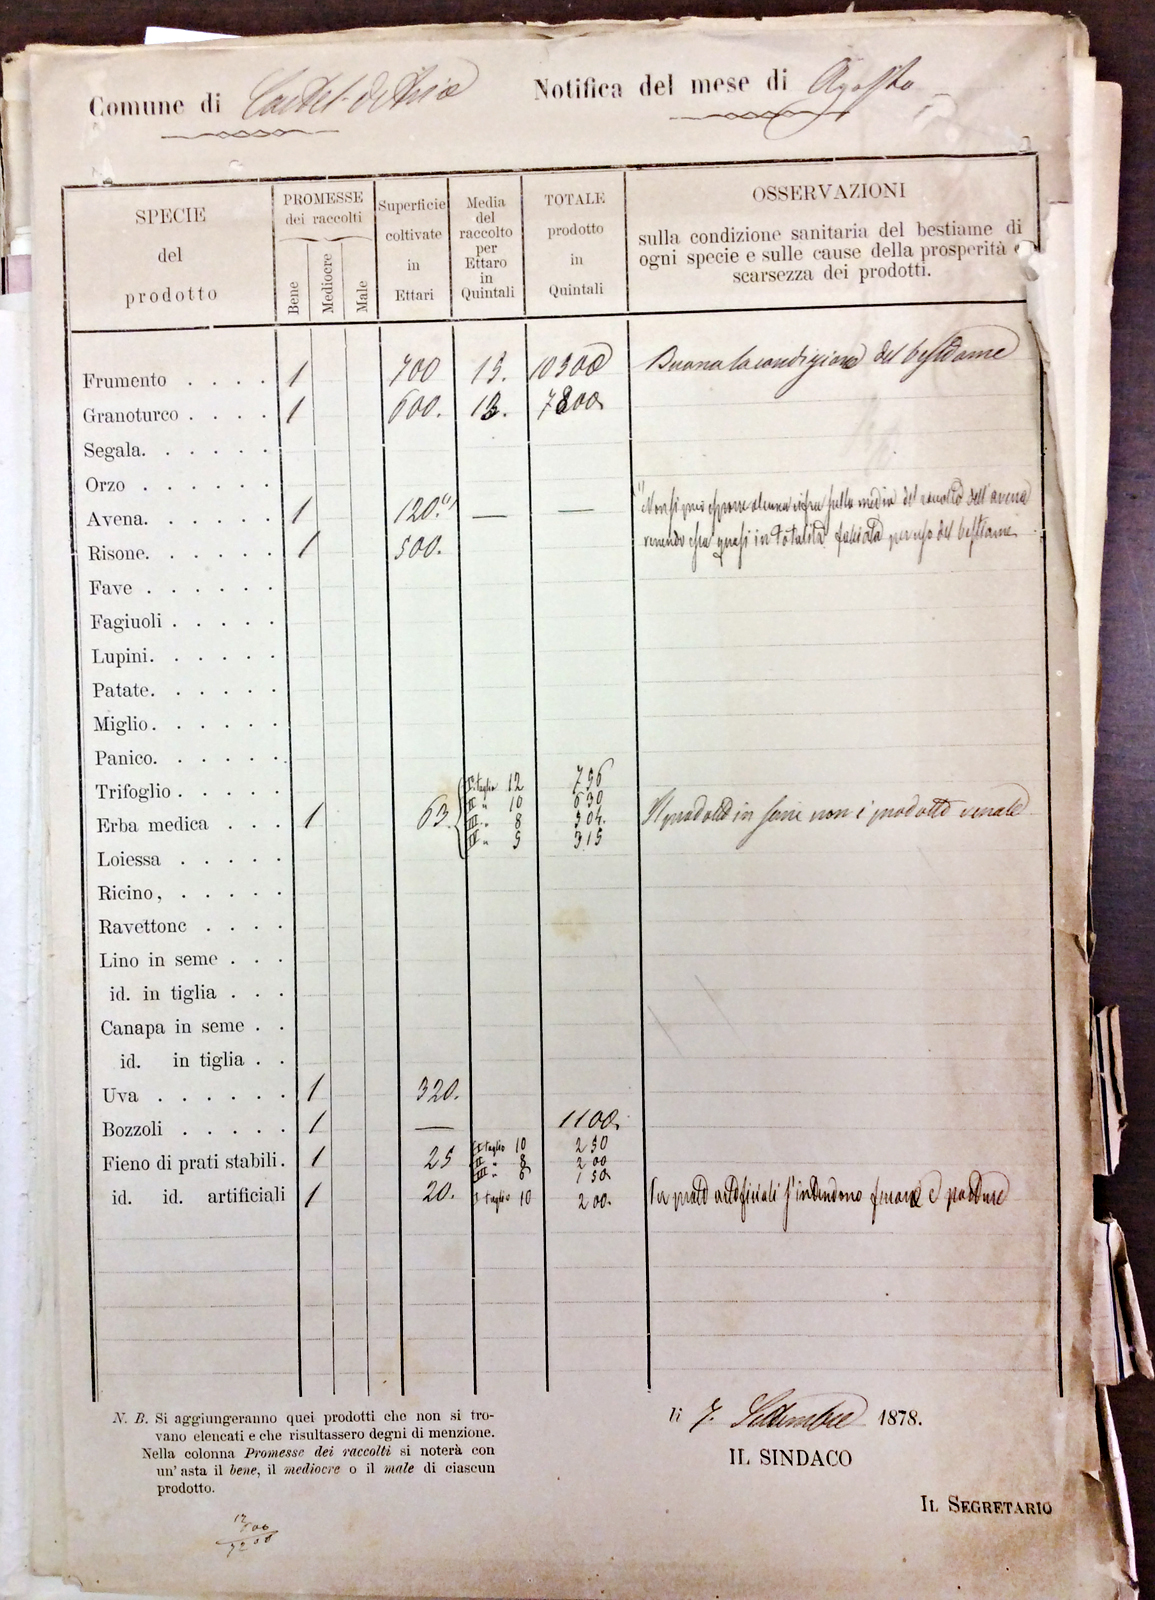 Comune di Castel d'Ario Notifica del mese di Agosto
SPECIE del prodotto
PROMESSE dei raccolti
Bene Mediocre Male
Superficie coltivate in Ettari
Media del raccolto per Ettaro in Quintali
TOTALE prodotto in Quintali
OSSERVAZIONI
sulla condizione sanitaria del bestiame di
ogni specie e sulle cause della prosperità o
scarsezza dei prodotti.
Frumento . . . . 1 700 15. 10500 Buona la condizione del bestiame
Granoturco . . . . 1 600. 13. 7800.
Segala. . . . . .
Orzo . . . . . .
Avena. . . . . . 1 120.(1) — — (1) Non si può esporre alcuna cifra sulla media del raccolto dell'avena
Risone. . . . . . 1 500. venendo essa quasi in totalità falciata per uso del bestiame
Fave . . . . . .
Fagiuoli . . . . . .
Lupini. . . . . .
Patate. . . . . .
Miglio. . . . . .
Panico. . . . . .
Trifoglio . . . . . I° taglio 12 756
II " 10 630
Erba medica . . . 1 63. III " 8 504. Il prodotto in seme non è prodotto venale
IV " 5 315
Loiessa . . . . .
Ricino, . . . . .
Ravettone . . . .
Lino in seme . . .
id. in tiglia . . .
Canapa in seme . .
id. in tiglia . .
Uva . . . . . . 1 320.
Bozzoli . . . . . 1 — 1100.
Fieno di prati stabili. 1 25 I taglio 10 250
II " 8 200
III " 6 150
id. id. artificiali 1 20. I taglio 10 200. Per prati artificiali s'intendono
N. B. Si aggiungeranno quei prodotti che non si tro-
vano elencati e che risultassero degni di menzione.
Nella colonna Promesse dei raccolti si noterà con
un' asta il bene, il mediocre o il male di ciascun
prodotto.
li 7. Settembre 1878.
IL SINDACO
IL SEGRETARIO
12
600
7200